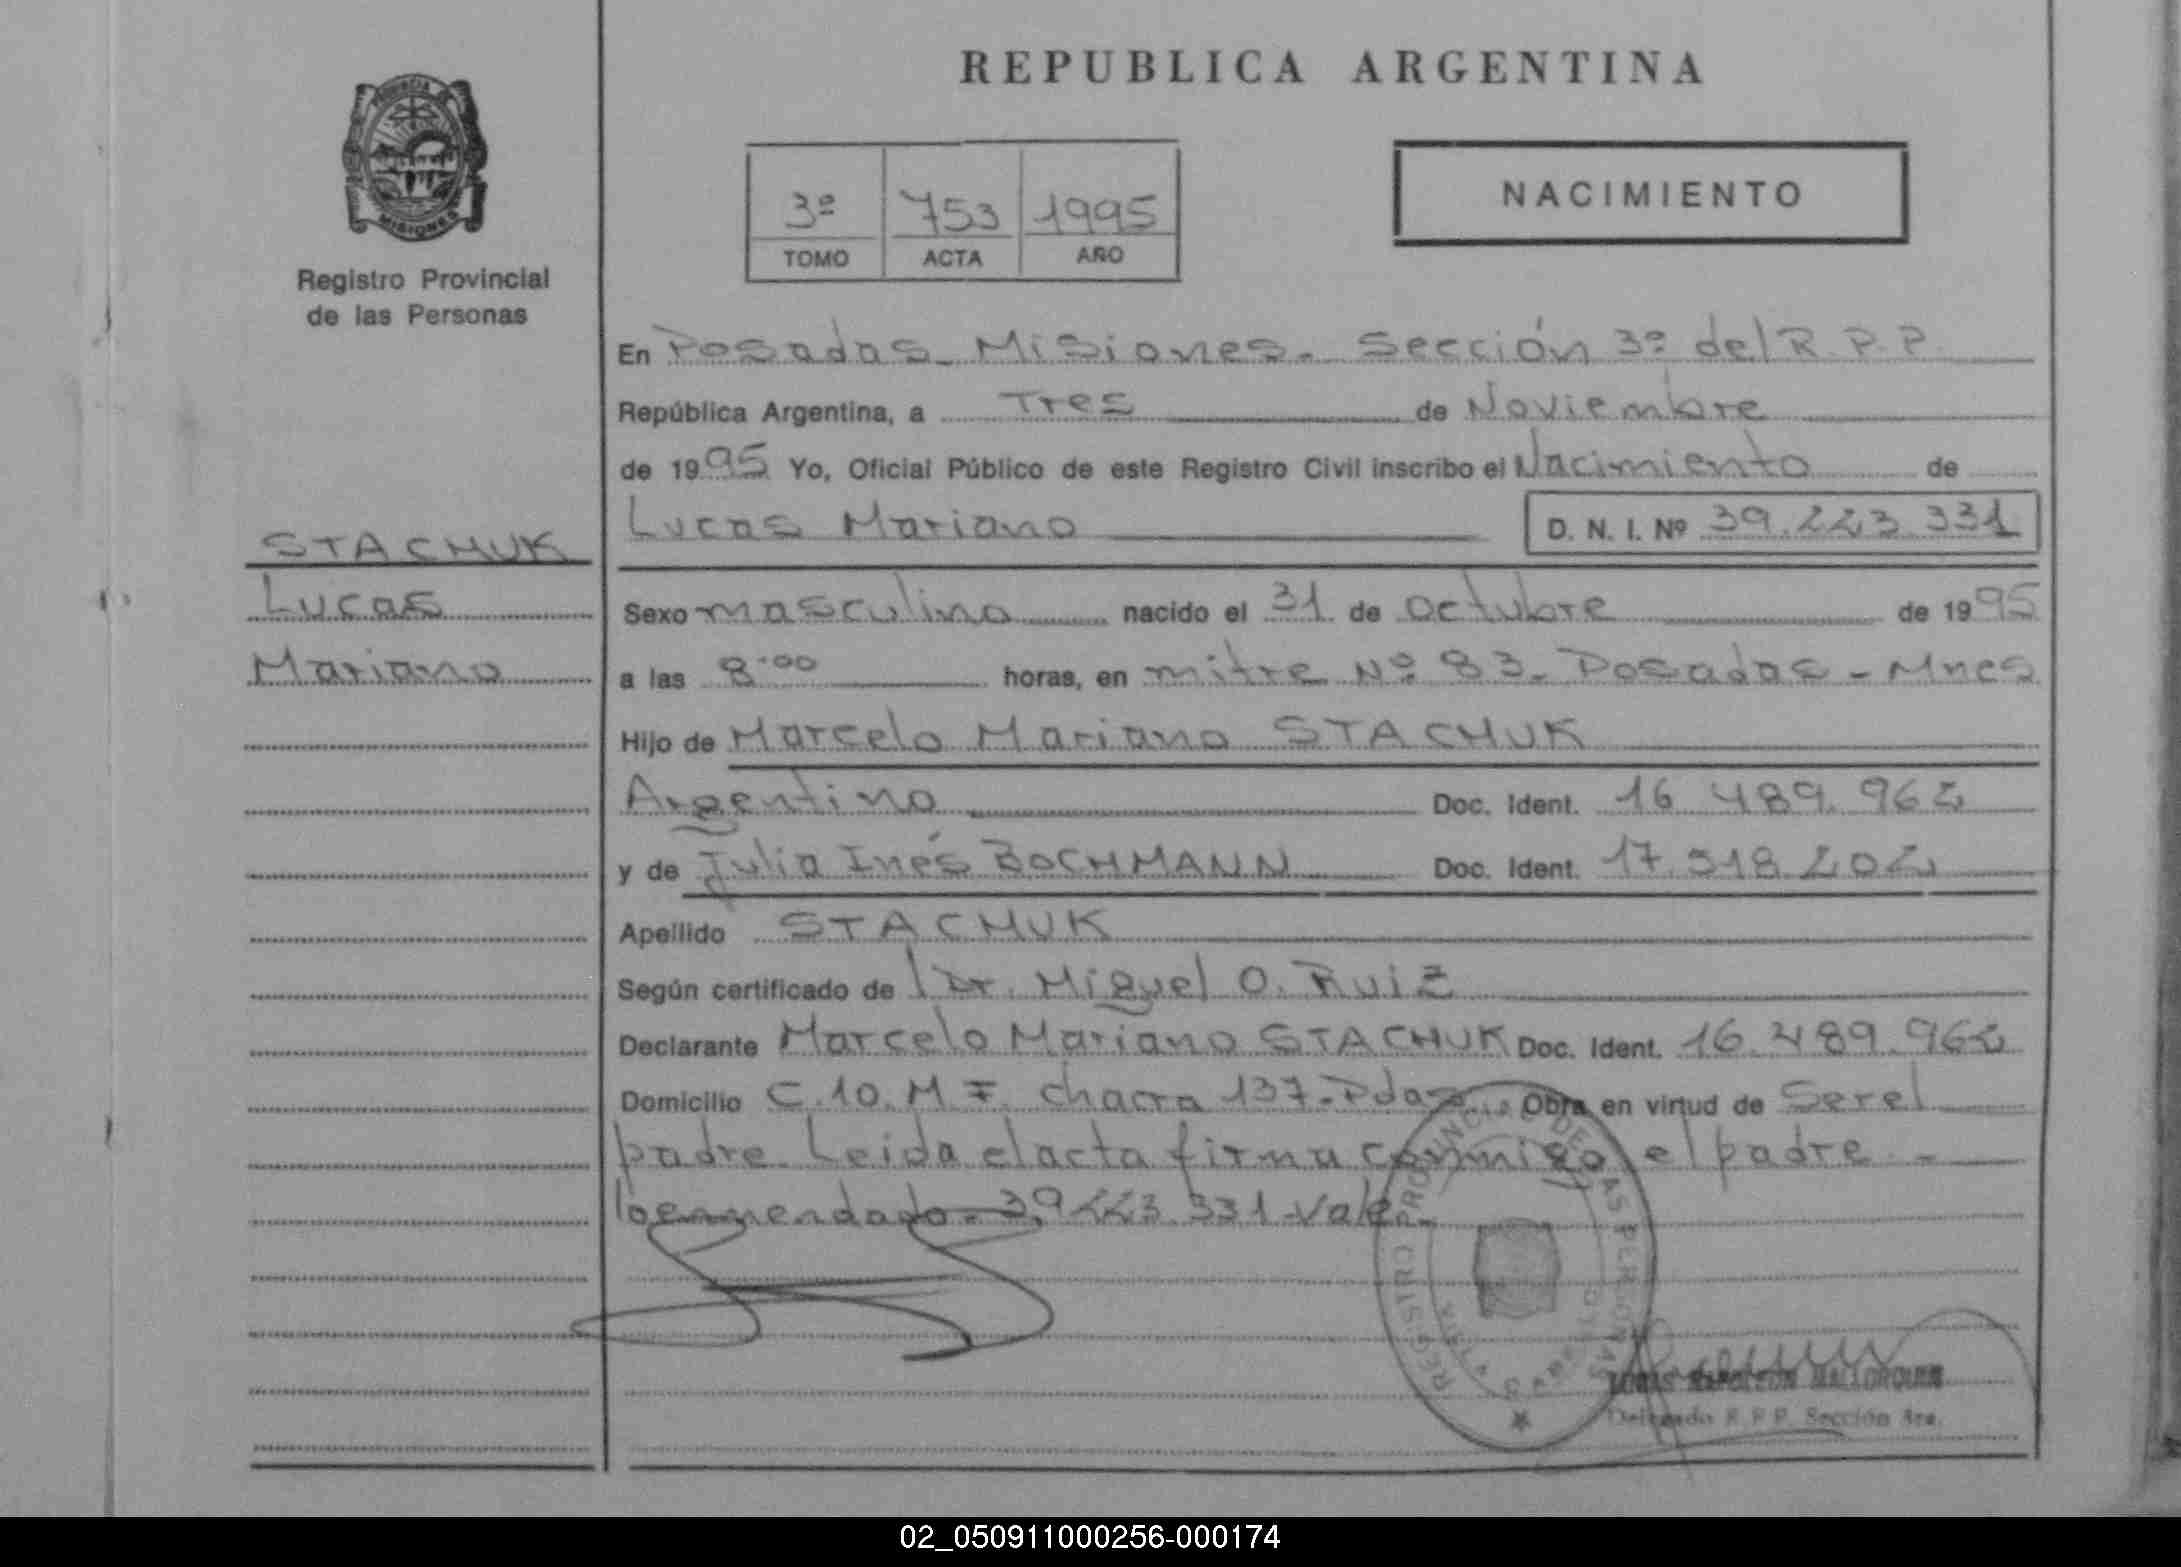 REPUBLICA ARGENTINA
PROVINCIA DE
MISIONES
Registro Provincial
de las Personas
3º 753 1995
TOMO ACTA AÑO
NACIMIENTO
En Posadas - Misiones. Sección 3º del R.P.P.
República Argentina, a Tres de Noviembre
de 1995 Yo, Oficial Público de este Registro Civil inscribo el Nacimiento de
Lucas Mariano D. N. I. Nº 39.223.331
STACHUK
Lucas
Mariano
Sexo masculino nacido el 31 de octubre de 1995
a las 8:00 horas, en mitre Nº 83. Posadas - Mnes
Hijo de Marcelo Mariano STACHUK
Argentino Doc. Ident. 16.489.962
y de Julia Inés BOCHMANN Doc. Ident. 17.318.202
Apellido STACHUK
Según certificado de Dr. Miguel O. Ruiz
Declarante Marcelo Mariano STACHUK Doc. Ident. 16.489.962
Domicilio C.10. M F. chacra 137-Pdas. Obra en virtud de Ser el
padre. Leida el acta firma conmigo el padre -
lo enmendado. 39.223.331. Vale.
REGISTRO PROVINCIAL DE LAS PERSONAS
NAPOLEON MALLORQUIN
Delegado R.P.P. Sección 3ra.
02_050911000256-000174